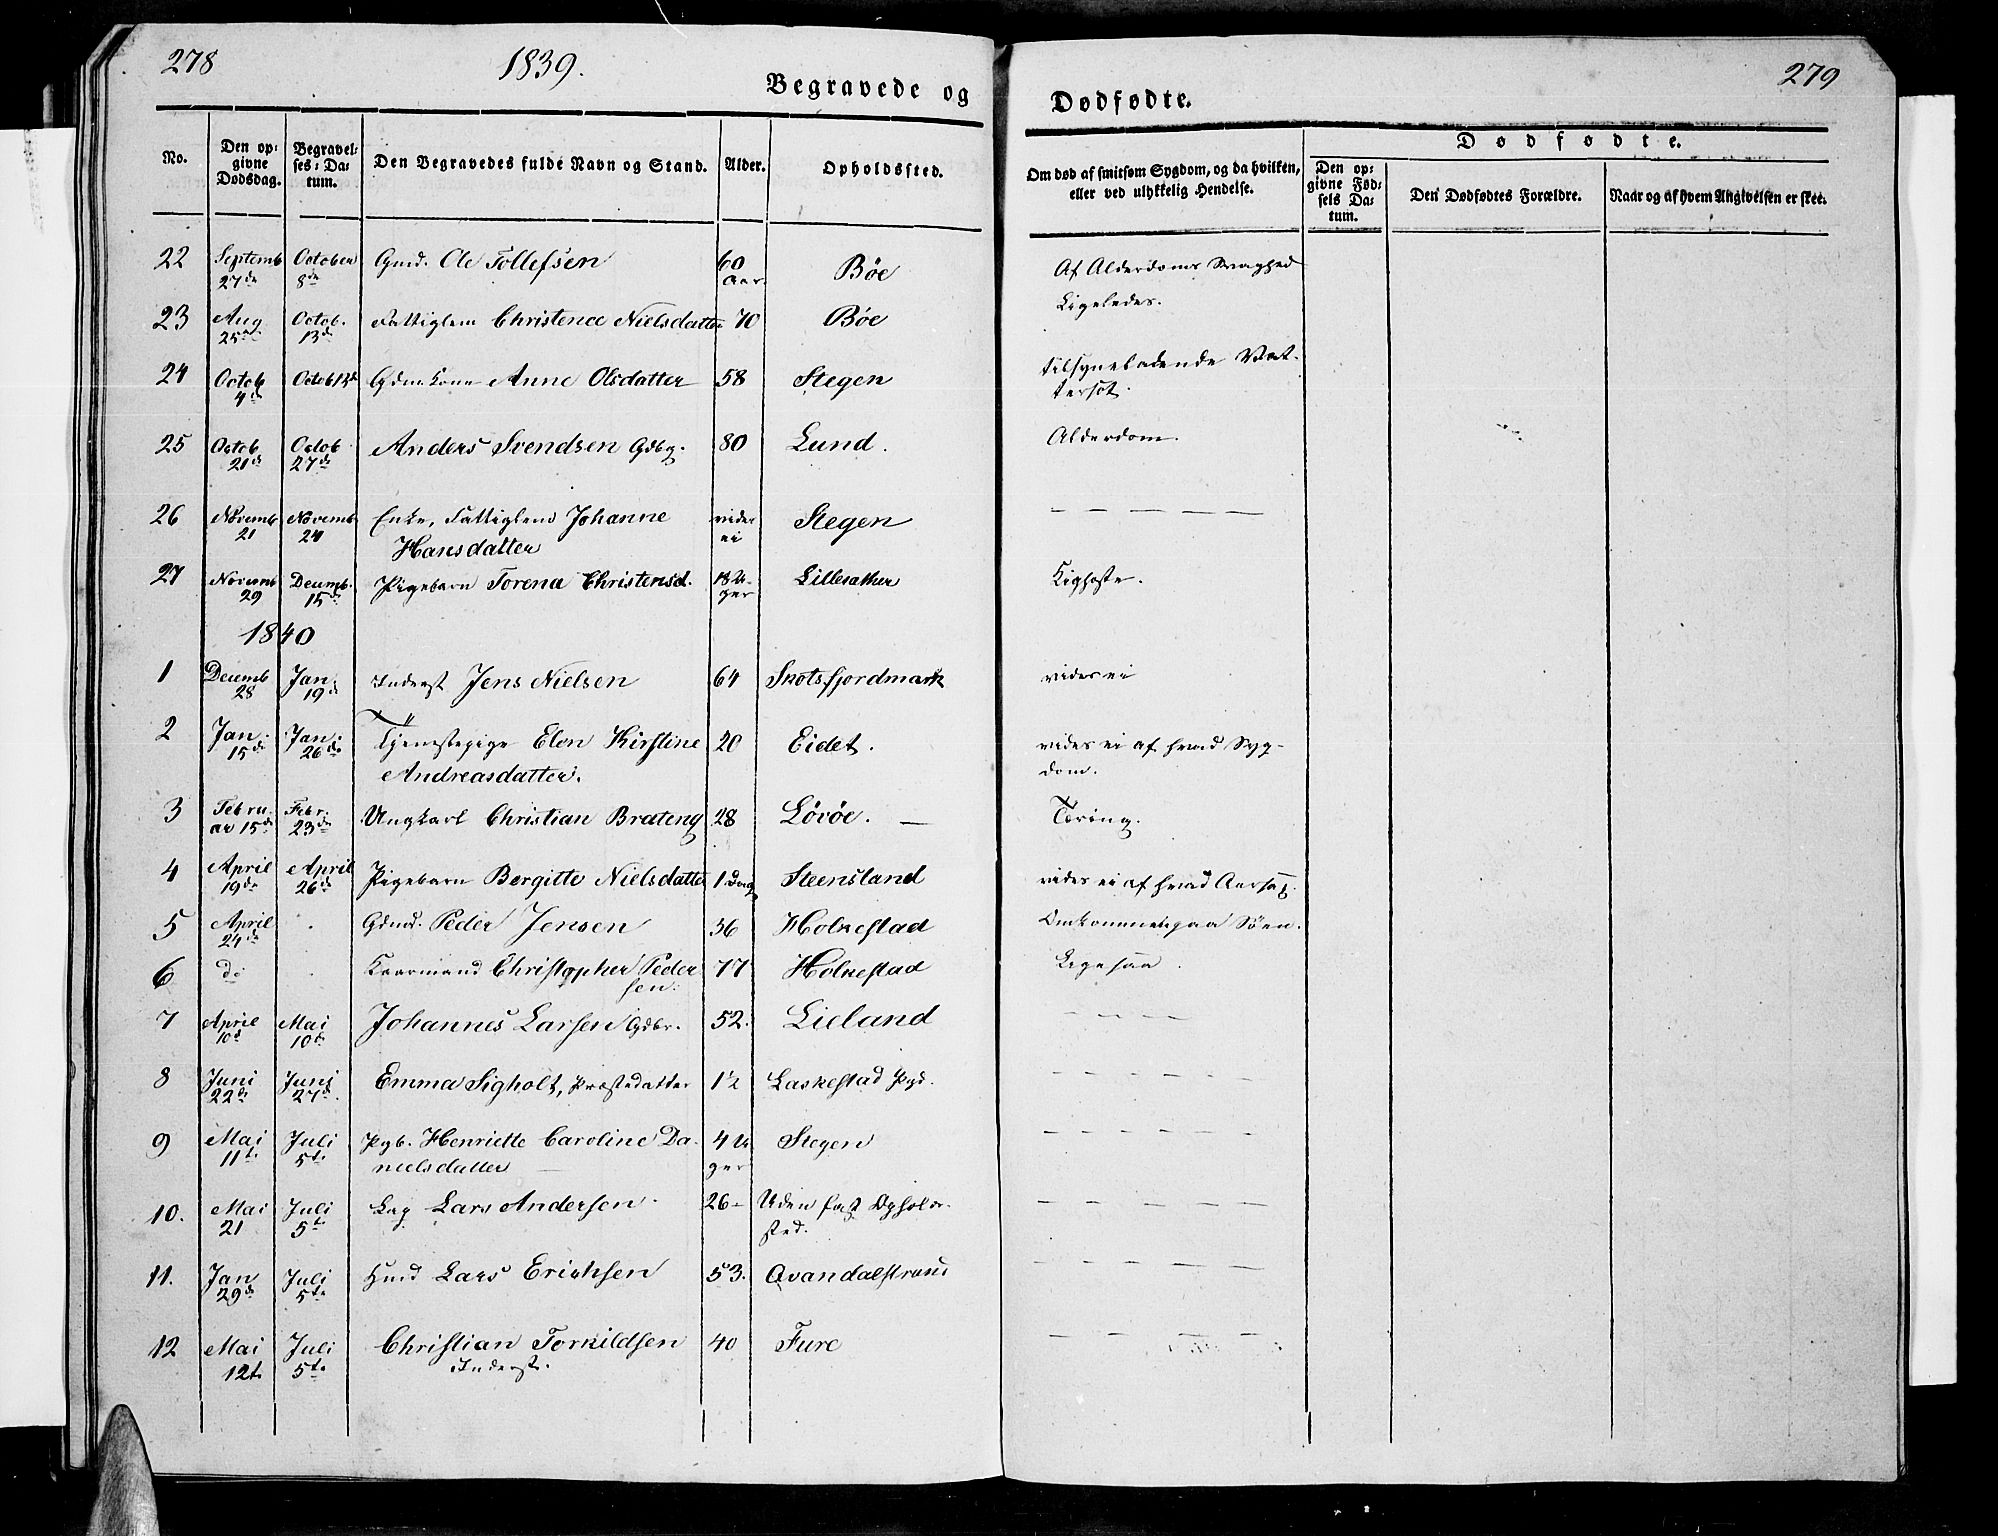 278
1839.
Begravede og
Dødfødte.
279
No.
Den op-
givne
Dødsdag.
Begravel-
ses-Da-
tum.
Den Begravedes fulde Navn og Stand.
Alder.
Opholdssted.
Om død af smitsom Sygdom, og da hvilken,
eller ved ulykkelig Hendelse.
Dødfødte.
Den op-
givne Fød-
sels Da-
tum.
Den Dødfødtes Forældre.
Naar og af hvem Angivelsen er skeet.
22 Septemb 27de October 8de Gmd. Ole Tollefsen 60 Aar. Bøe Af Alderdoms Svaghed
23 Aug 25de Octob. 13de Fattiglem Christence Nielsdatter 70 Bøe Ligeledes.
24 Octob 4de Octob 13de Gdm. Kone Anne Olsdatter 58 Stegen tilsyneladende Vat-
tersot.
25 Octob 21de Octob 27de Anders Svendsen Gdbg. 80 Lund. Alderdom.
26 Novemb 21 Novemb 24 Enke, Fattiglem Johanne vides ei Stegen — — — — —
Hansdatter
27 Novemb 29 Decemb. 15de Pigebarn Torena Christensd. 18 U-
ger Kighoste.
1840
1 Decemb 28 Jan. 19de Inderst Jens Nielsen 64 Skotsfjordmark vides ei
2 Jan. 15de Jan. 26de Tjenestepige Elen Kirstine 20 Eidet. vides ei af hvad Syg-
Andreasdatter. dom.
3 Febru-
ar 15de Febr. 23de Ungkarl Christian Brateng 28 Løvøe. — Tæring.
4 April 19de April 26de Pigebarn Bergitte Nielsdatter 1 Dag Steensland vides ei af hvad Aarsag.
5 April 24de . Gdmd. Peder Jensen 36 Holkestad Omkommet paa Søen.
6 do . Kaarmand Christopher Peder 77 Holkestad Ligesaa.
sen.
7 April 10d Mai 10de Johannes Larsen Gdbr. 52. Lieland - — — —
8 Juni 22de Juni 27de. Emma Sigholt, Præstedatter 1½ Laskestad Pgd. - - - - - -
9 Mai 11te Juli 5te Pgb. Henriette Caroline Da- 4 U Stegen — — - — - —
nielsdatter — ger
10. Mai 21 Juli 5te Lap Lars Andersen. 26 - Uden fast Opholds- — — — — —
sted.
11. Jan 29de Juli 5te Hmd Lars Erichsen 53. — — — — —
12 Mai 12t. Juli 5te Christian Torkildsen 40 Fure — — — — —
Inderst.